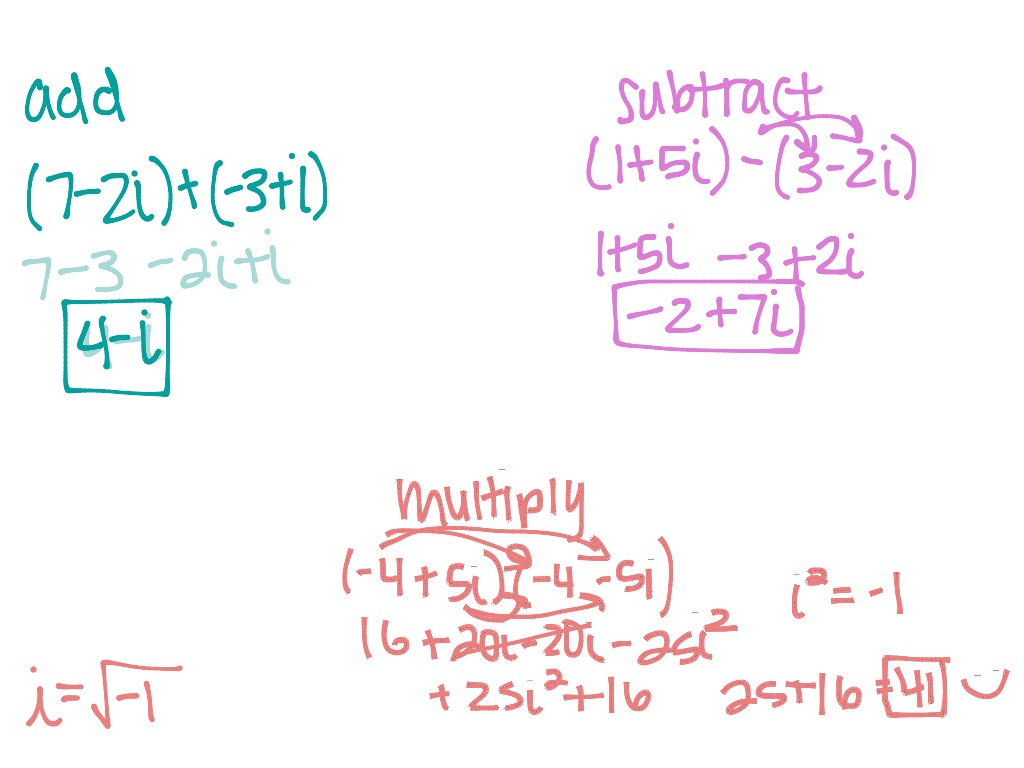 add
(7-2i)+(-3+i)
7-3 -2i+i
4-i
subtract
(1+5i)-(3-2i)
1+5i -3+2i
-2+7i
multiply
(-4+5i)(-4-5i)
16+20i-20i-25i²
+25i²+16
i²=-1
i=√-1
25+16=41